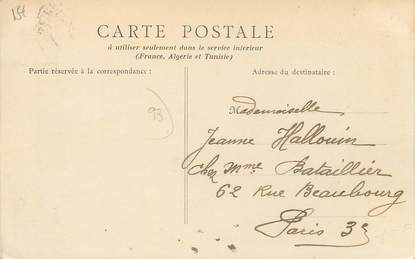 154
CARTE POSTALE
à utiliser seulement dans le service intérieur
(France, Algérie et Tunisie)
Partie réservée à la correspondance:
Adresse du destinataire:
93
Mademoiselle
Jeanne Hallouin
chez Mme Bataillier
62 Rue Beaubourg
Paris 3e